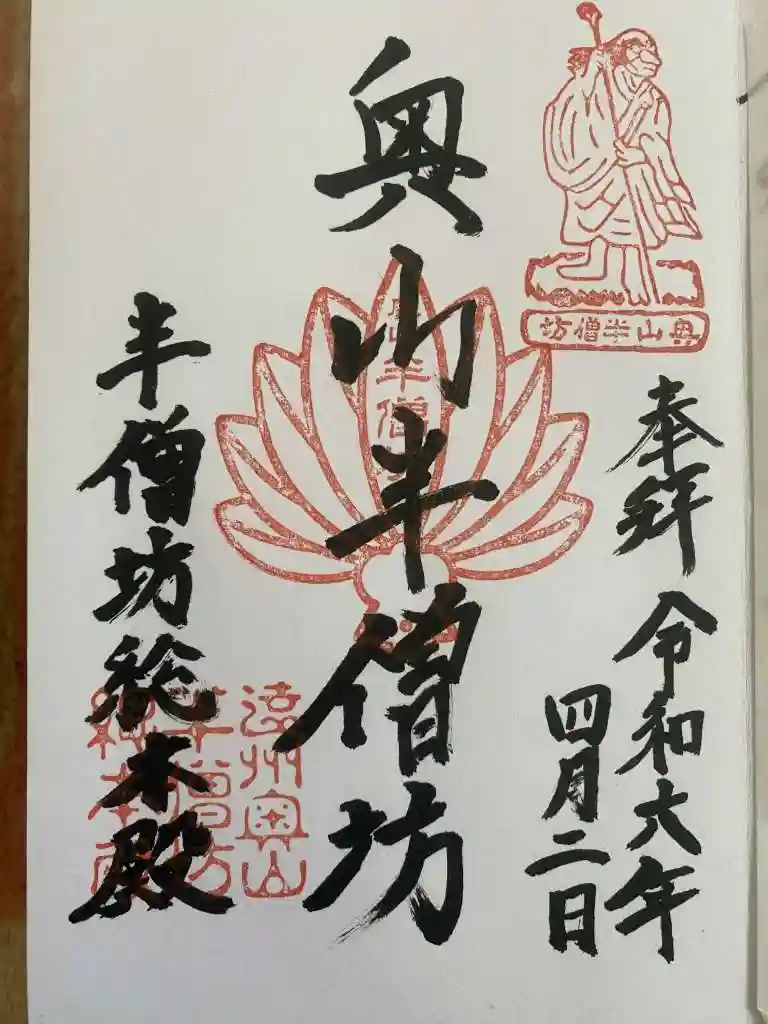 奉拝
令和六年
四月二日
奥山半僧坊
半僧坊総本殿
奥山半僧坊
遠州奥山
半僧坊
総本殿